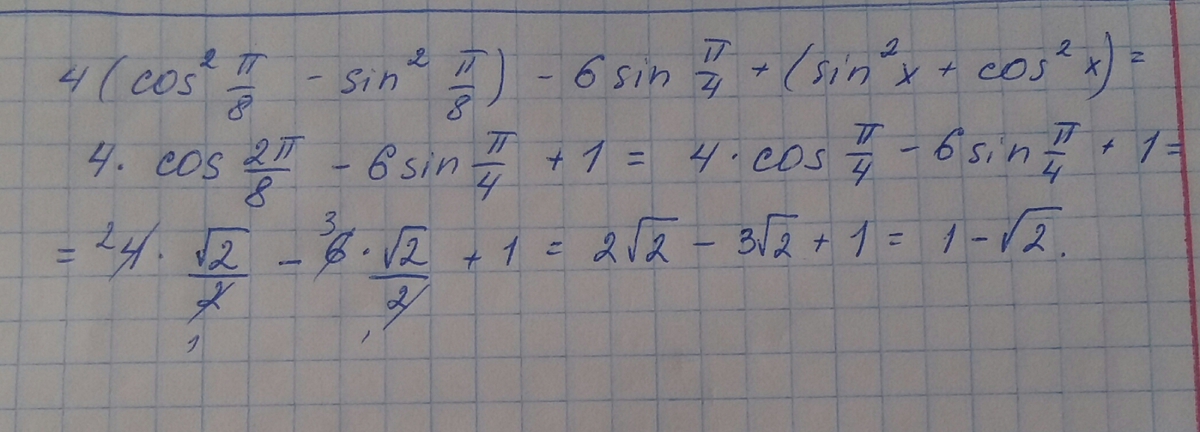 4(cos² π/8 - sin² π/8) - 6 sin π/4 + (sin² x + cos² x) =
4 · cos 2π/8 - 6 sin π/4 + 1 = 4 · cos π/4 - 6 sin π/4 + 1 =
= ²4 · √2/2₁ - ³6 · √2/2₁ + 1 = 2√2 - 3√2 + 1 = 1 - √2.